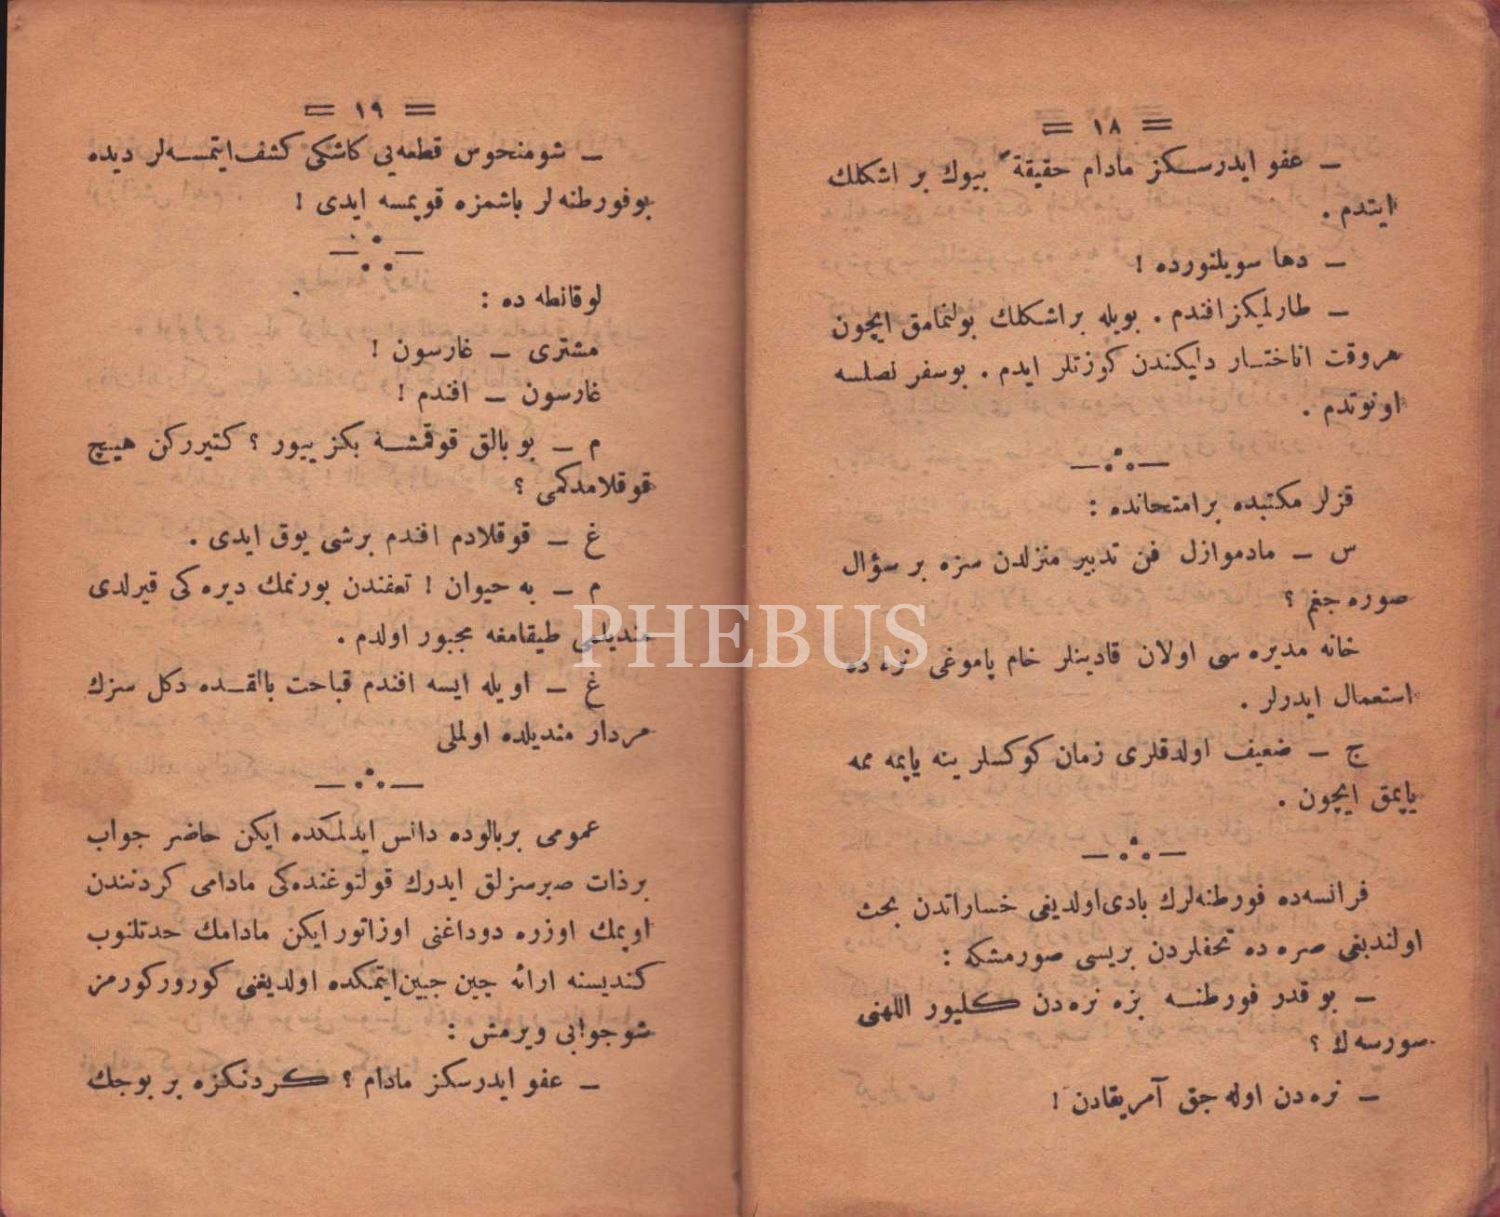 = ١٨ =
ـ عفو ايدرسكز مادام حقيقةً بيوك بر اشكلك
ايتدم .
ـ دها سويلنورده !
ـ طارلميكز افندم . بويله بر اشكلك بولنمامق ايچون
هر وقت اناختار دليكندن كوزتلر ايدم . بو سفر نصلسه
اونوتدم .
قزلر مكتبده بر امتحانده :
س ـ مادموازل فن تدبير منزلدن سزه بر سؤال
صوره جغم ؟
خانه مديره سى اولان قادينلر خام پاموغى نره ده
استعمال ايدرلر .
ج ـ ضعيف اولدقلرى زمان كوكسلرينه ياپمه ممه
ياپمق ايچون .
فرانسه ده فورطنه لرك بادى اولديغى خساراتدن بحث
اولنديغى صره ده تحفلردن بريسى صورمشكه :
ـ بو قدر فورطنه بزه نره دن كليور اللهنى
سورسه ك ؟
ـ نره دن اوله جق آمريقادن !
= ١٩ =
ـ شو منحوس قطعه يى كاشكى كشف ايتمسه لر ديده
بو فورطنه لر باشمزه قويمسه ايدى !
لوقانطه ده :
مشترى ـ غارسون !
غارسون ـ افندم !
م ـ بو بالق قوقمشه بكزييور ؟ كتيرركن هيچ
قوقلامدكمى ؟
غ ـ قوقلادم افندم برشى يوق ايدى .
م ـ به حيوان ! تعفندن بورنمك ديره كى قيرلدى
منديلمى طيقامغه مجبور اولدم .
غ ـ اويله ايسه افندم قباحت بالقده دكل سزك
مردار منديلده اولملى
عمومى بر بالوده دانس ايدلمكده ايكن حاضر جواب
بر ذات صبرسزلق ايدرك قولتوغنده كى مادامى كردنندن
اوپمك اوزره دوداغنى اوزاتور ايكن مادامك حدتلنوب
كنديسنه ارائه چين جبين ايتمكده اولديغنى كورور كورمز
شو جوابى ويرمش :
ـ عفو ايدرسكز مادام ؟ كردنكزه بر بوجك
PHEBUS